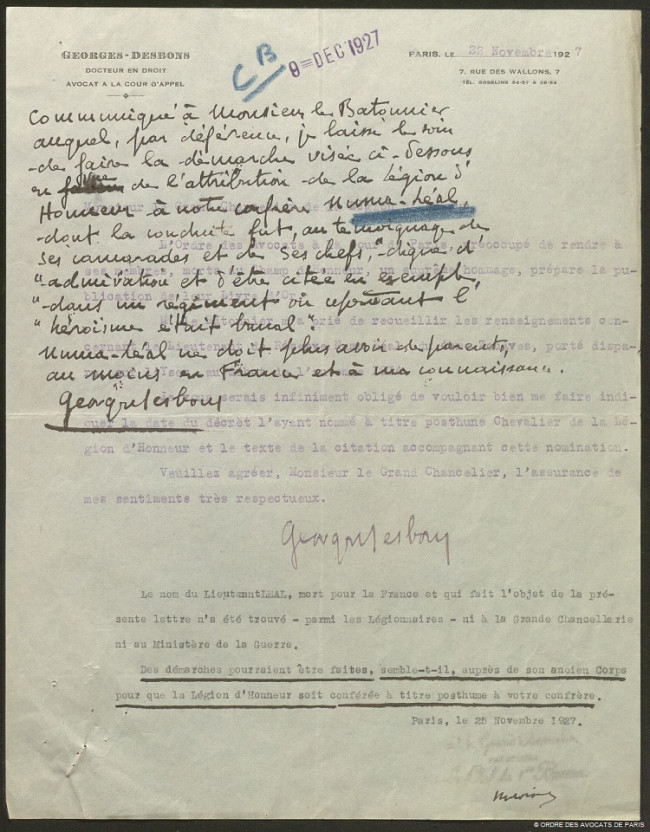 GEORGES-DESBONS
DOCTEUR EN DROIT
AVOCAT A LA COUR D'APPEL
CB
9 = DEC 1927
PARIS, LE 22 Novembre 1927
7, RUE DES WALLONS, 7
TÉL. GOBELINS
Communiqué à Monsieur le Batonnier
auquel, par déférence, je laisse le soin
de faire la démarche visée ci-dessous
en vue de l'attribution de la Légion d'
Honneur à notre confrère Numa-Léal,
dont la conduite fut, au témoignage de
ses camarades et de ses chefs, "digne d'
"admiration et d'être citée en exemple
"dans un régiment où cependant l'
"héroïsme était banal".
Numa-Léal ne doit plus avoir de parents,
au moins en France et à ma connaissance.
Georges Desbons
L'Ordre des Avocats à la Cour de Paris, préoccupé de rendre à
ses membres, morts au champ d'honneur, un suprême homage, prépare la pu-
blication de leur Livre d'Or.
M. le Batonnier m'a prié de recueillir les renseignements con-
cernant le Lieutenant porté dispa-
Je vous serais infiniment obligé de vouloir bien me faire indi-
quer la date du décrêt l'ayant nommé à titre posthume Chevalier de la Lé-
gion d'Honneur et le texte de la citation accompagnant cette nomination.
Veuillez agréer, Monsieur le Grand Chancelier, l'assurance de
mes sentiments très respectueux.
Georges Desbons
Le nom du Lieutenant LEAL, mort pour la France et qui fait l'objet de la pré-
sente lettre n'a été trouvé - parmi les Légionnaires - ni à la Grande Chancellerie
ni au Ministère de la Guerre.
Des démarches pourraient être faites, semble-t-il, auprès de son ancien Corps
pour que la Légion d'Honneur soit conférée à titre posthume à votre confrère.
Paris, le 25 Novembre 1927.
© ORDRE DES AVOCATS DE PARIS